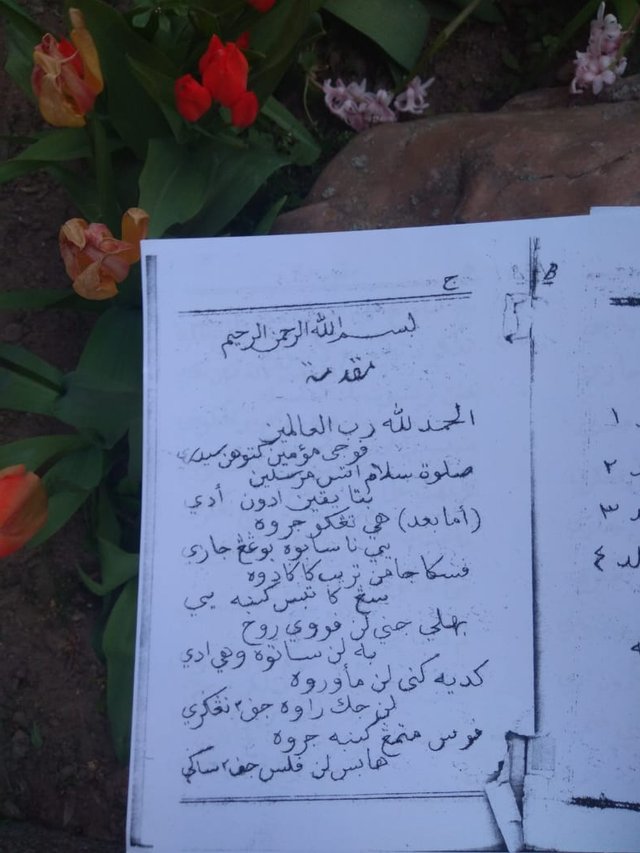 ج
بسم الله الرحمن الرحيم
مقدمة
الحمد لله رب العالمين
فوجي مؤمنين كتوهن سيدي
صلوة سلام اتس مرسلين
يقين ادون أدي
(أما بعد) هي نڠكو جروه
يي نا سانوه بوڠڠ جاري
فسكا جامن كادوه
كا كينه يي
بهلي جني لن فووي روح
به لن سانوه وهي ادي
كديه كني لن مأوروه
لن جك راوه جڤ٢ نڠكري
فوس متمڠ كينه جروه
هابس لن فلس جڤ٢ ساكي
B
١
٢
د ٣
لد ٤